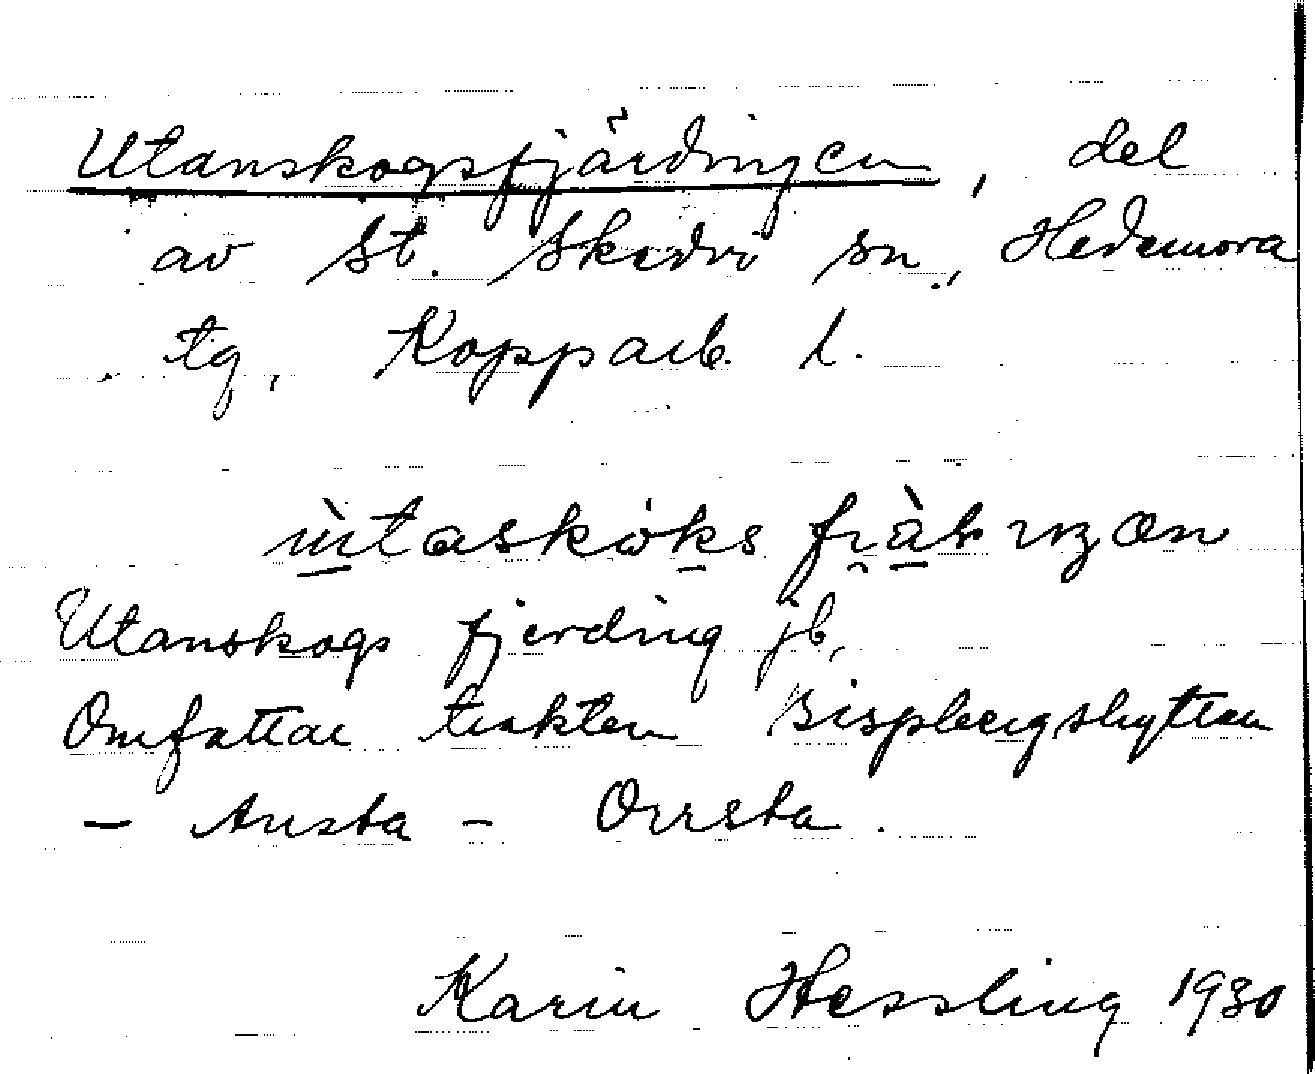 Utanskogsfjärdingen, del
av St. Skedvi sn, Hedemora
tg, Kopparb. l.
Utanskogs fjerding jb,
Omfattar trakten Bispbergshyttan
– Arsta – Orrsta.
Karin Hessling 1930